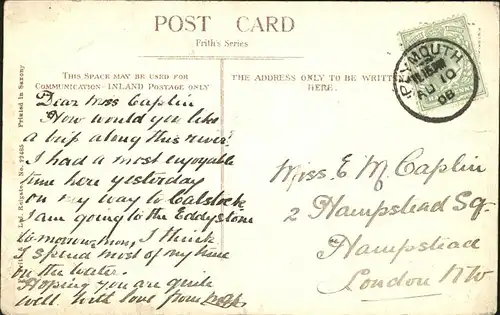 POST CARD
Frith's Series
THIS SPACE MAY BE USED FOR
COMMUNICATION - INLAND POSTAGE ONLY
THE ADDRESS ONLY TO BE WRITTEN
HERE.
Dear Miss Caplin
How would you like
a trip along this river.
I had a most enjoyable
time here yesterday
on my way to Calstock
I am going to the Eddystone
to-morrow now, I think
I spend most of my time
on the water.
Hoping you are quite
well. With love from
Miss. E M. Caplin
2 Hampstead Sq.
Hampstead
London NW
MOUTH
AU 10
08
Ltd. Reigate. No.
Printed in Saxony